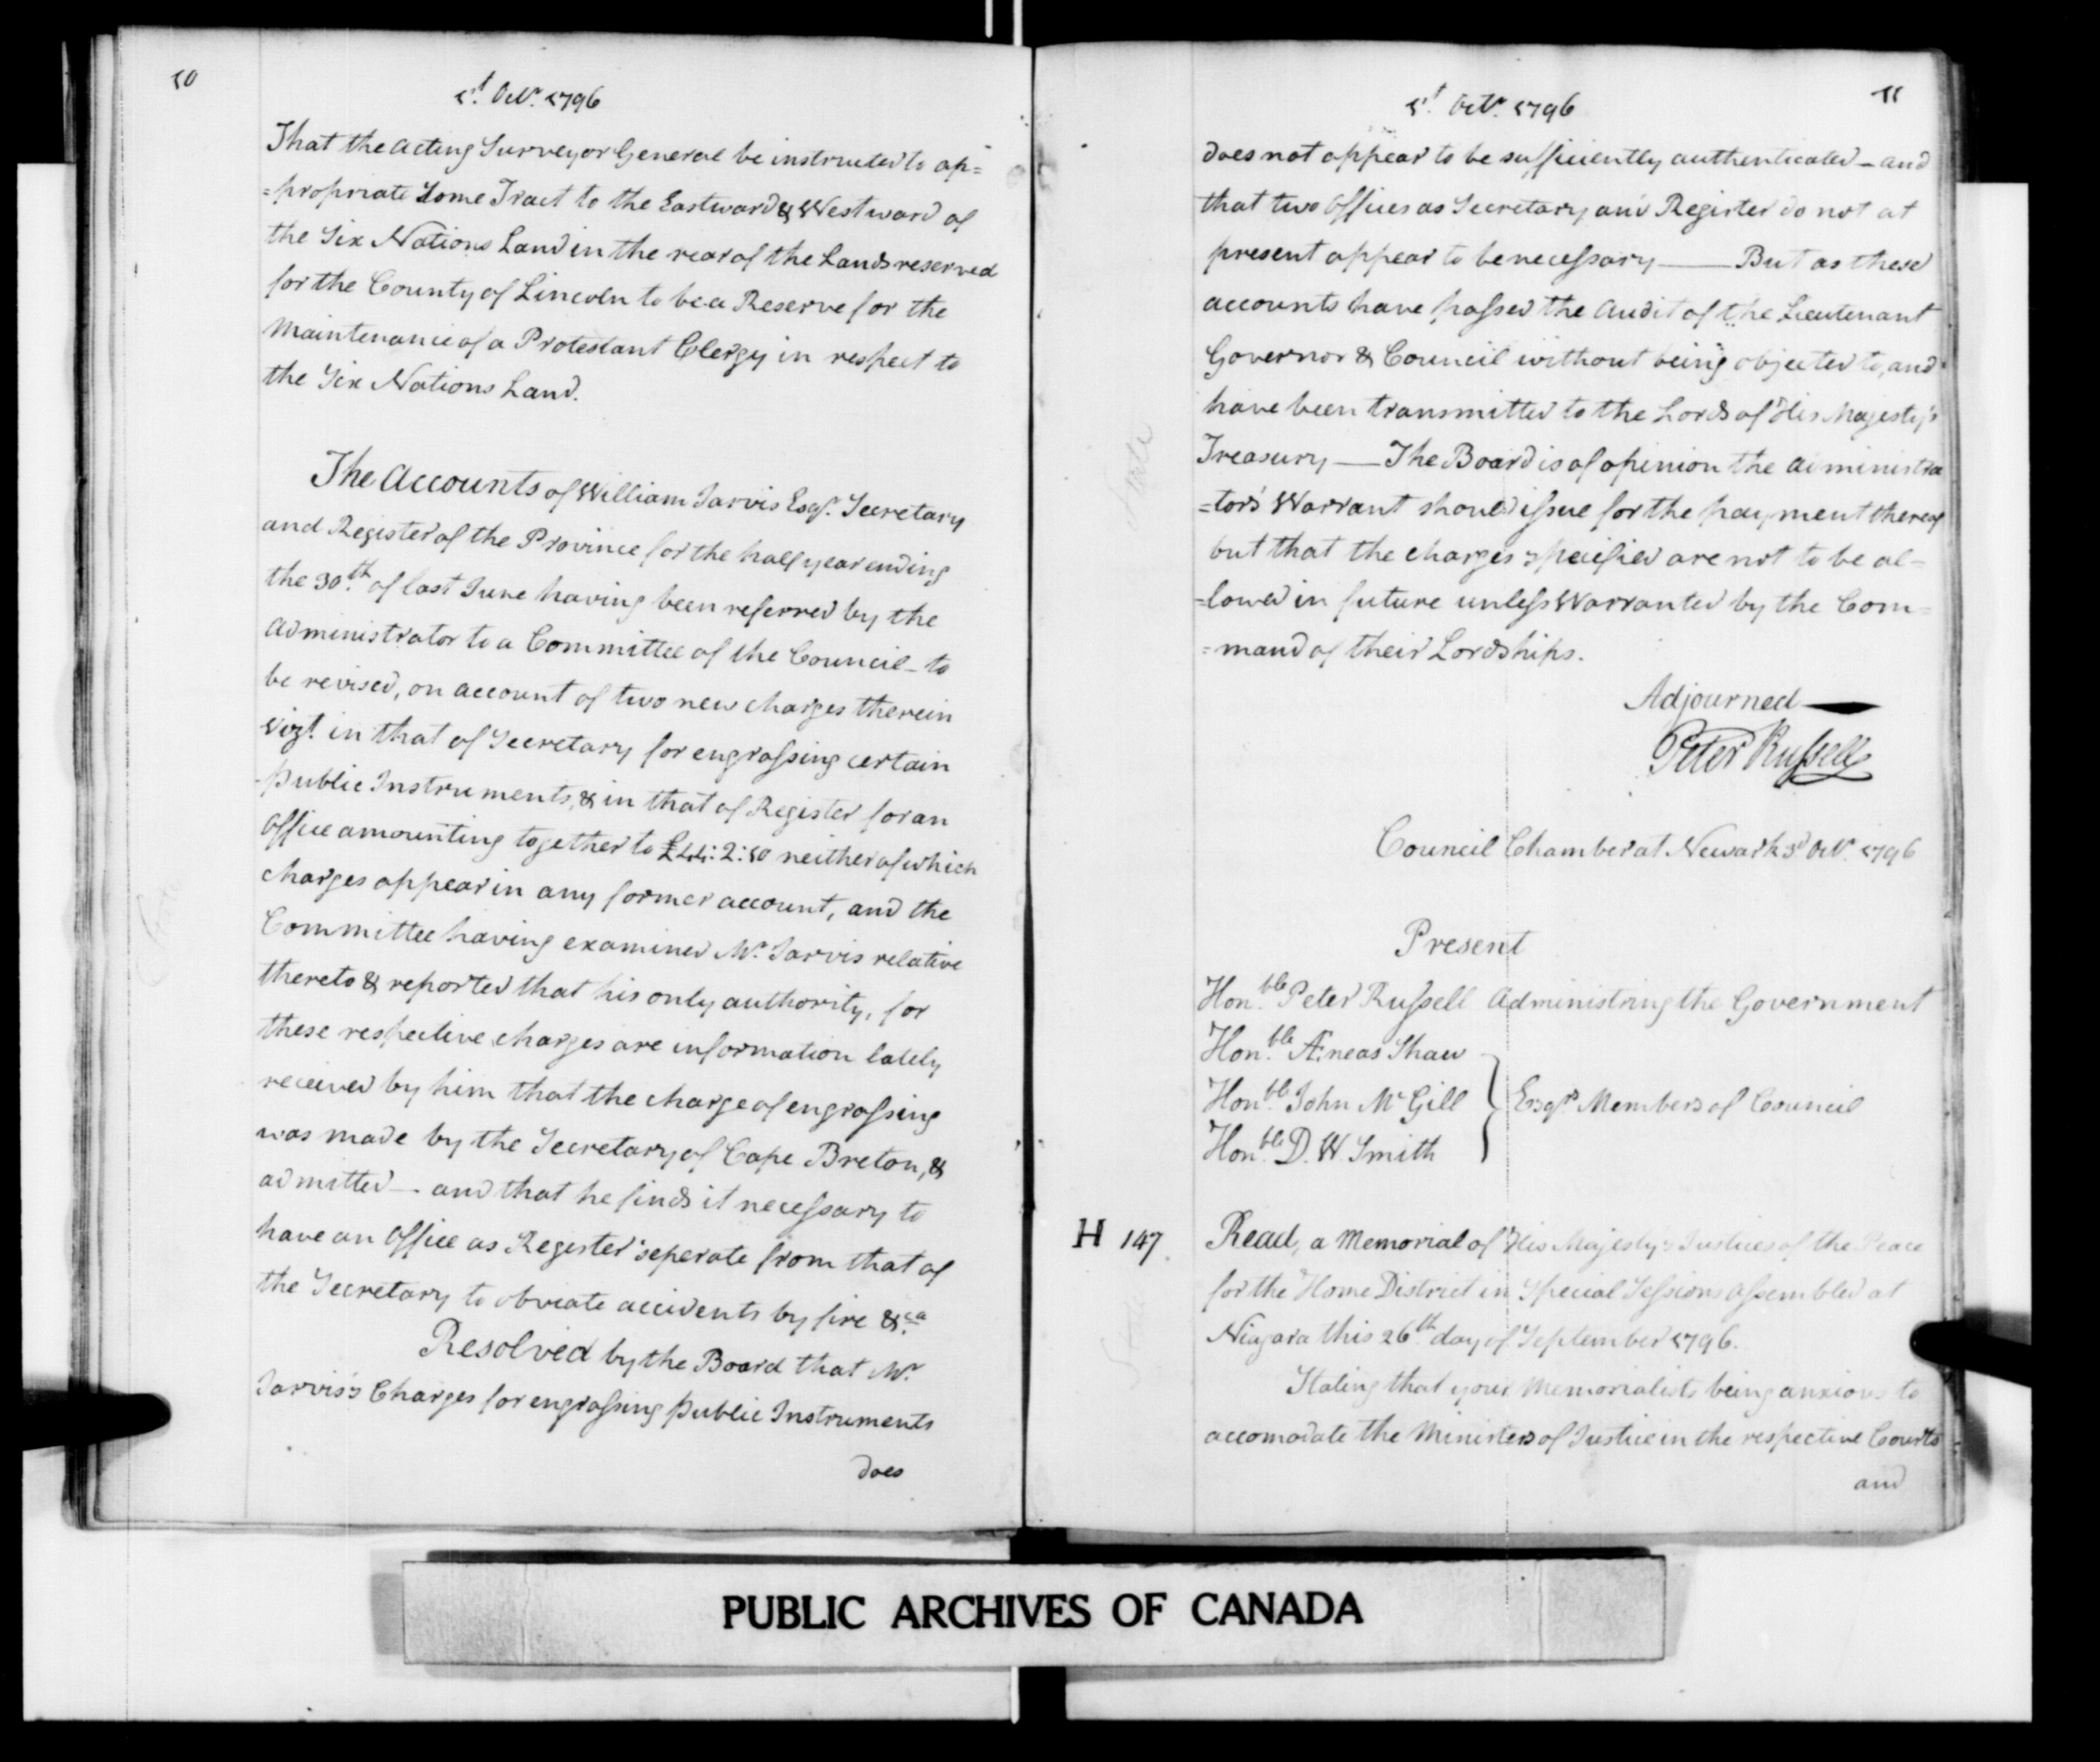 10
1st. Octr. 1796
That the Acting Surveyor General be instructed to ap=
=propriate some Tract to the Eastward & Westward of
the Six Nations Land in the rear of the Lands reserved
for the County of Lincoln to be a Reserve for the
Maintenance of a Protestant Clergy in respect to
the Six Nations Land.
The Accounts of William Jarvis Esqr. Secretary
and Register of the Province for the half year ending
the 30th. of last June having been referred by the
Administrator to a Committee of the Council - to
be revised, on account of two new charges therein
Vizt. in that of Secretary for engrossing certain
public Instruments, & in that of Register for an
Office amounting together to £44: 2: 10 neither of which
charges appear in any former account, and the
Committee having examined Mr. Jarvis relative
thereto & reported that his only authority, for
these respective charges are information lately
received by him that the charge of engrossing
was made by the Secretary of Cape Breton, &
admitted — and that he finds it necessary to
have an Office as Register seperate from that of
the Secretary to obviate accidents by fire &ca.
Resolved by the Board that Mr.
Jarvis's Charges for engrossing public Instruments
does
11
1st. Octr. 1796
does not appear to be sufficiently authenticated - and
that two Offices as Secretary and Register do not at
present appear to be necessary —— But as these
accounts have passed the Audit of the Lieutenant
Governor & Council without being objected to, and
have been transmitted to the Lords of His Majesty's
Treasury — The Board is of opinion the Administra
=tor's Warrant should issue for the payment thereof
but that the charges specified are not to be al=
=lowed in future unless Warranted by the Com=
=mand of their Lordships.
Adjourned —
Peter Russell
Council Chamber at Newark 3d Octr. 1796
Present
Honble. Peter Russell Administring the Government
Honble. Æneas Shaw
Honble. John McGill } Esqrs. Members of Council
Honble. D. W. Smith
H 147 Read, a Memorial of His Majesty's Justices of the Peace
for the Home District in Special Sessions Assembled at
Niagara this 26th. day of September 1796.
Stating that your Memorialists being anxious to
accomodate the Ministers of Justice in the respective Courts
and
PUBLIC ARCHIVES OF CANADA